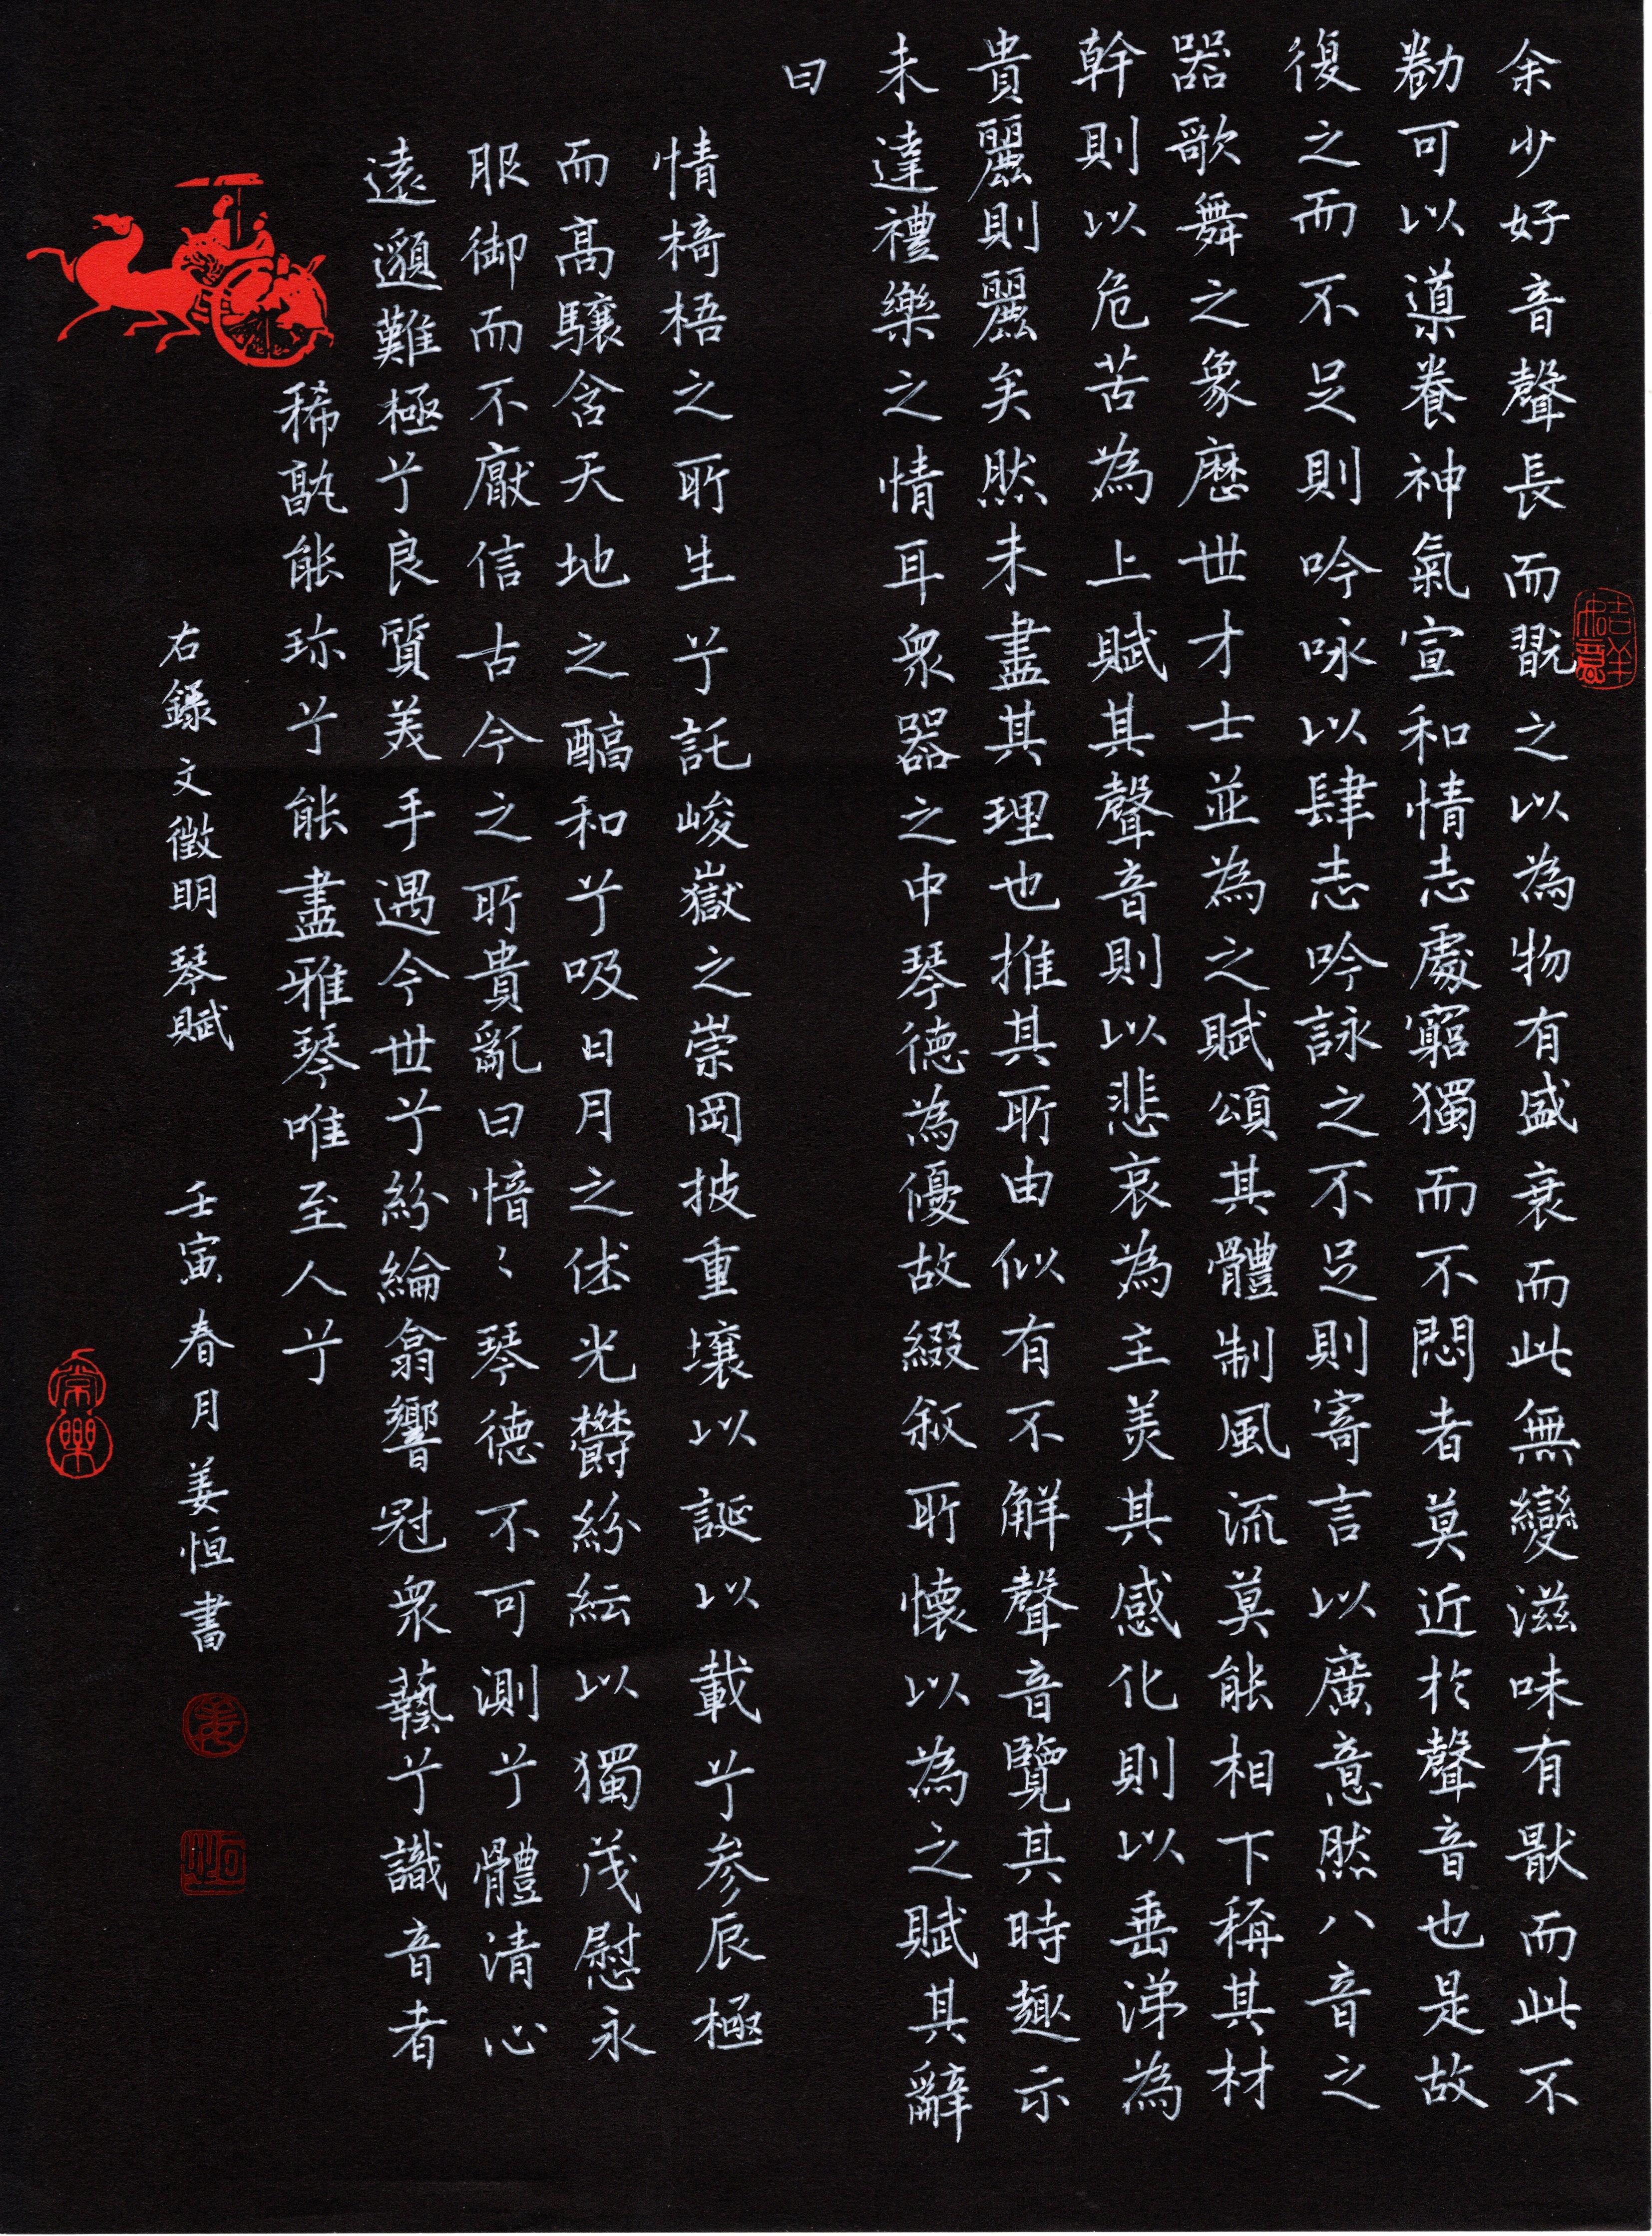 余少好音聲長而翫之以為物有盛衰而此無變滋味有猒而此不
勌可以導養神氣宣和情志處窮獨而不悶者莫近於聲音也是故
復之而不足則吟咏以肆志吟詠之不足則寄言以廣意然八音之
器歌舞之象歷世才士並為之賦頌其體制風流莫能相下稱其材
幹則以危苦為上賦其聲音則以悲哀為主美其感化則以垂涕為
貴麗則麗矣然未盡其理也推其所由似有不解聲音覽其時趣示
未達禮樂之情耳衆器之中琴德為優故綴叙所懷以為之賦其辭
曰
情椅梧之所生兮託峻嶽之崇岡披重壤以誕以載兮参辰極
而高驤含天地之醕和兮吸日月之㳀光欝紛紜以獨茂慰永
服御而不厭信古今之所貴亂曰愔〻琴德不可測兮體清心
遠邈難極兮良質美手遇今世兮紛綸翕響冠衆藝兮識音者
稀孰能珎兮能盡雅琴唯至人兮
右錄文徵明琴賦 壬寅春月姜恒書
吉羊如意
常樂
姜
恒